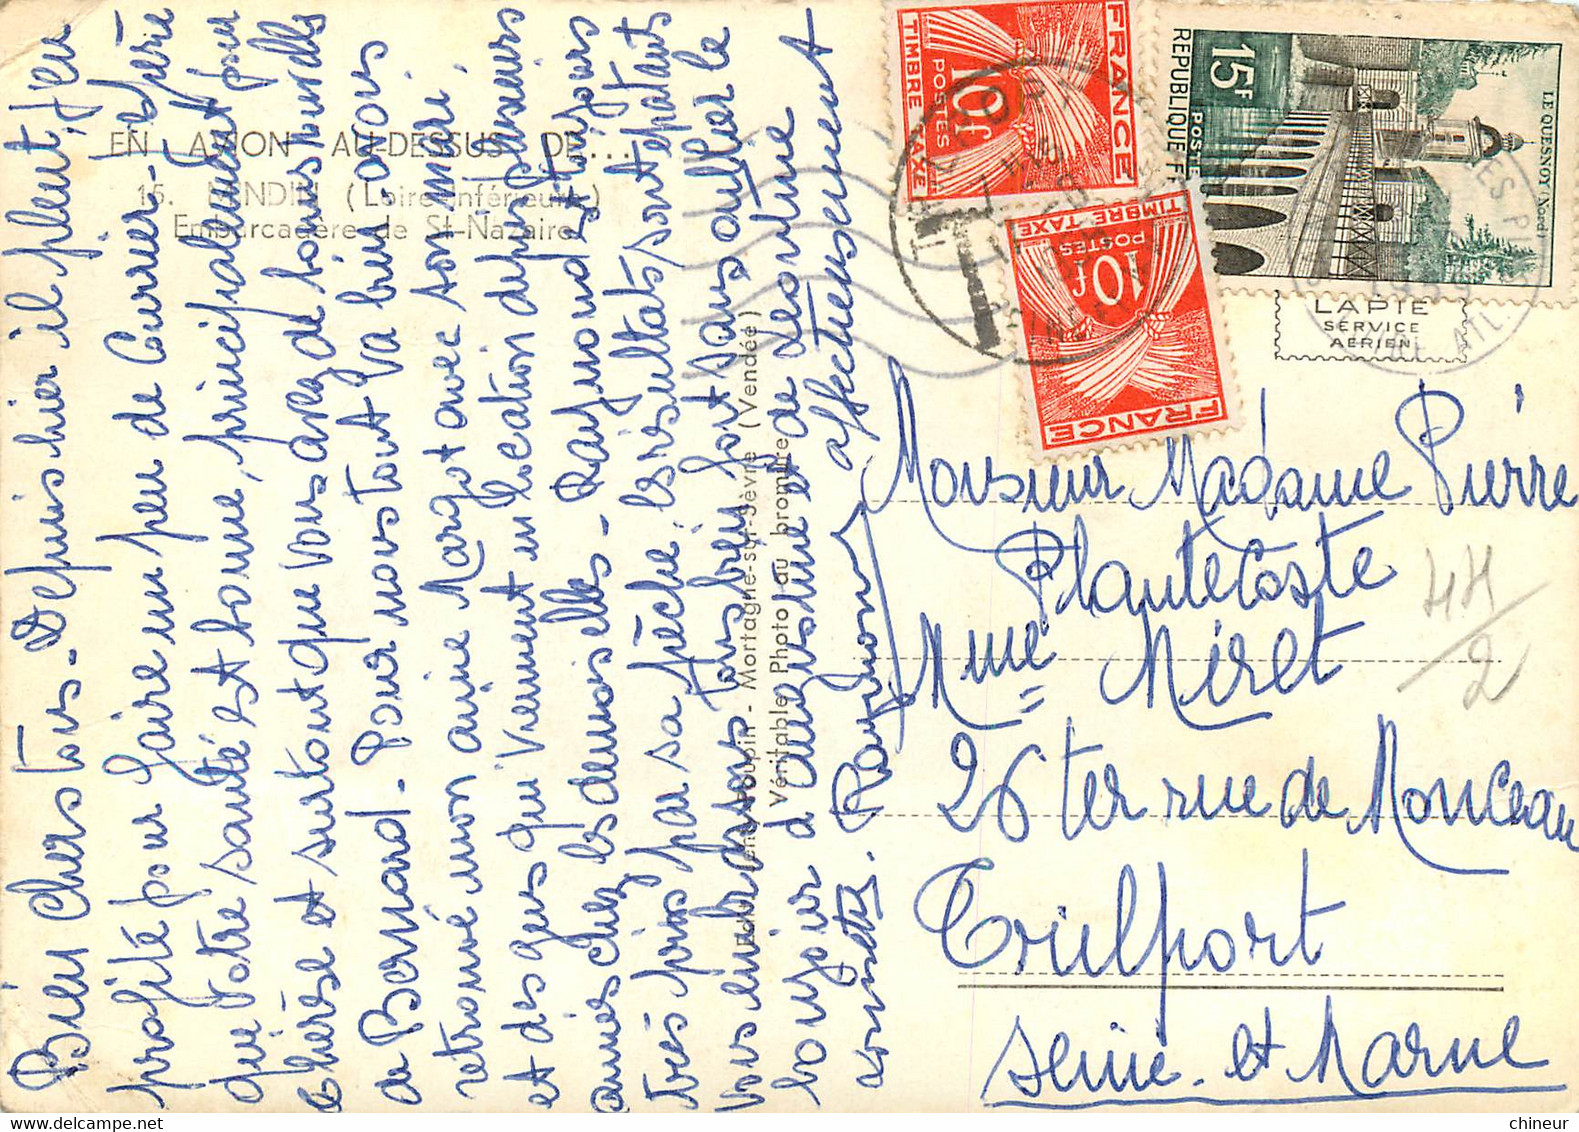 Bien chers tous - Depuis hier il pleut, j'en
profité pour faire un peu de Courrier - J'espère
que votre santé est bonne, principalement pour
Thérèse et surtout que vous avez de bonnes nouvelles
de Bernard. Pour nous tout va bien, avons
retrouvé mon amie Margot avec son mari
et des gens qui viennent en location depuis plusieurs
années chez les demoiselles - Raymond est toujours
très pris par sa pêche, les résultats sont épatants
Vous embrassons tous bien fort sans oublier le
bonjour d'
affectueusement
Raymond
EN AVION AU-DESSUS DE...
15. MINDIN (Loire-Inférieure)
Embarcadère de St-Nazaire
Mortagne-sur-Sèvre (Vendée)
Véritable Photo au bromure
FRANCE
10f
POSTES
TIMBRE TAXE
FRANCE
10f
POSTES
TIMBRE TAXE
15F
POSTE
REPUBLIQUE FR
LE QUESNOY (Nord)
LAPIE
SERVICE
AERIEN
T
Monsieur Madame Pierre
Plantecoste
Mme Méret
26 ter rue de Monceau
Trilport
Seine et Marne
44/2
chineur